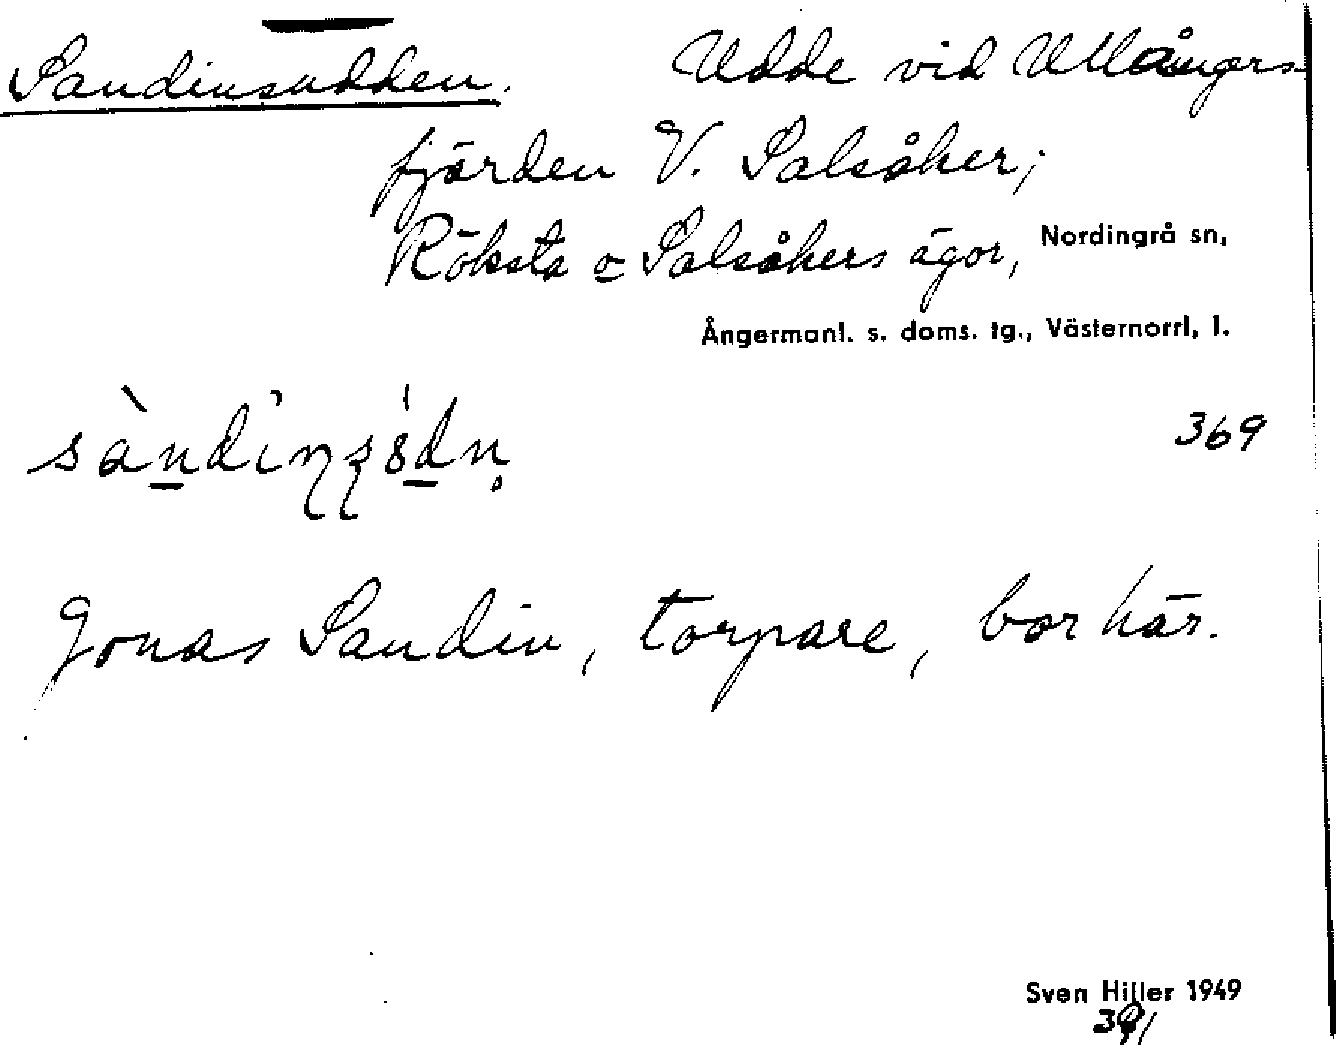 Sandinsudden. Udde vid Ullångers-
fjärden V. Salsåker;
Röksta o Salsåkers ägor, Nordingrå sn,
Ångermanl. s. doms. tg., Västernorrl. l.
369
Jonas Sandin, torpare, bor här.
Sven Hiller 1949